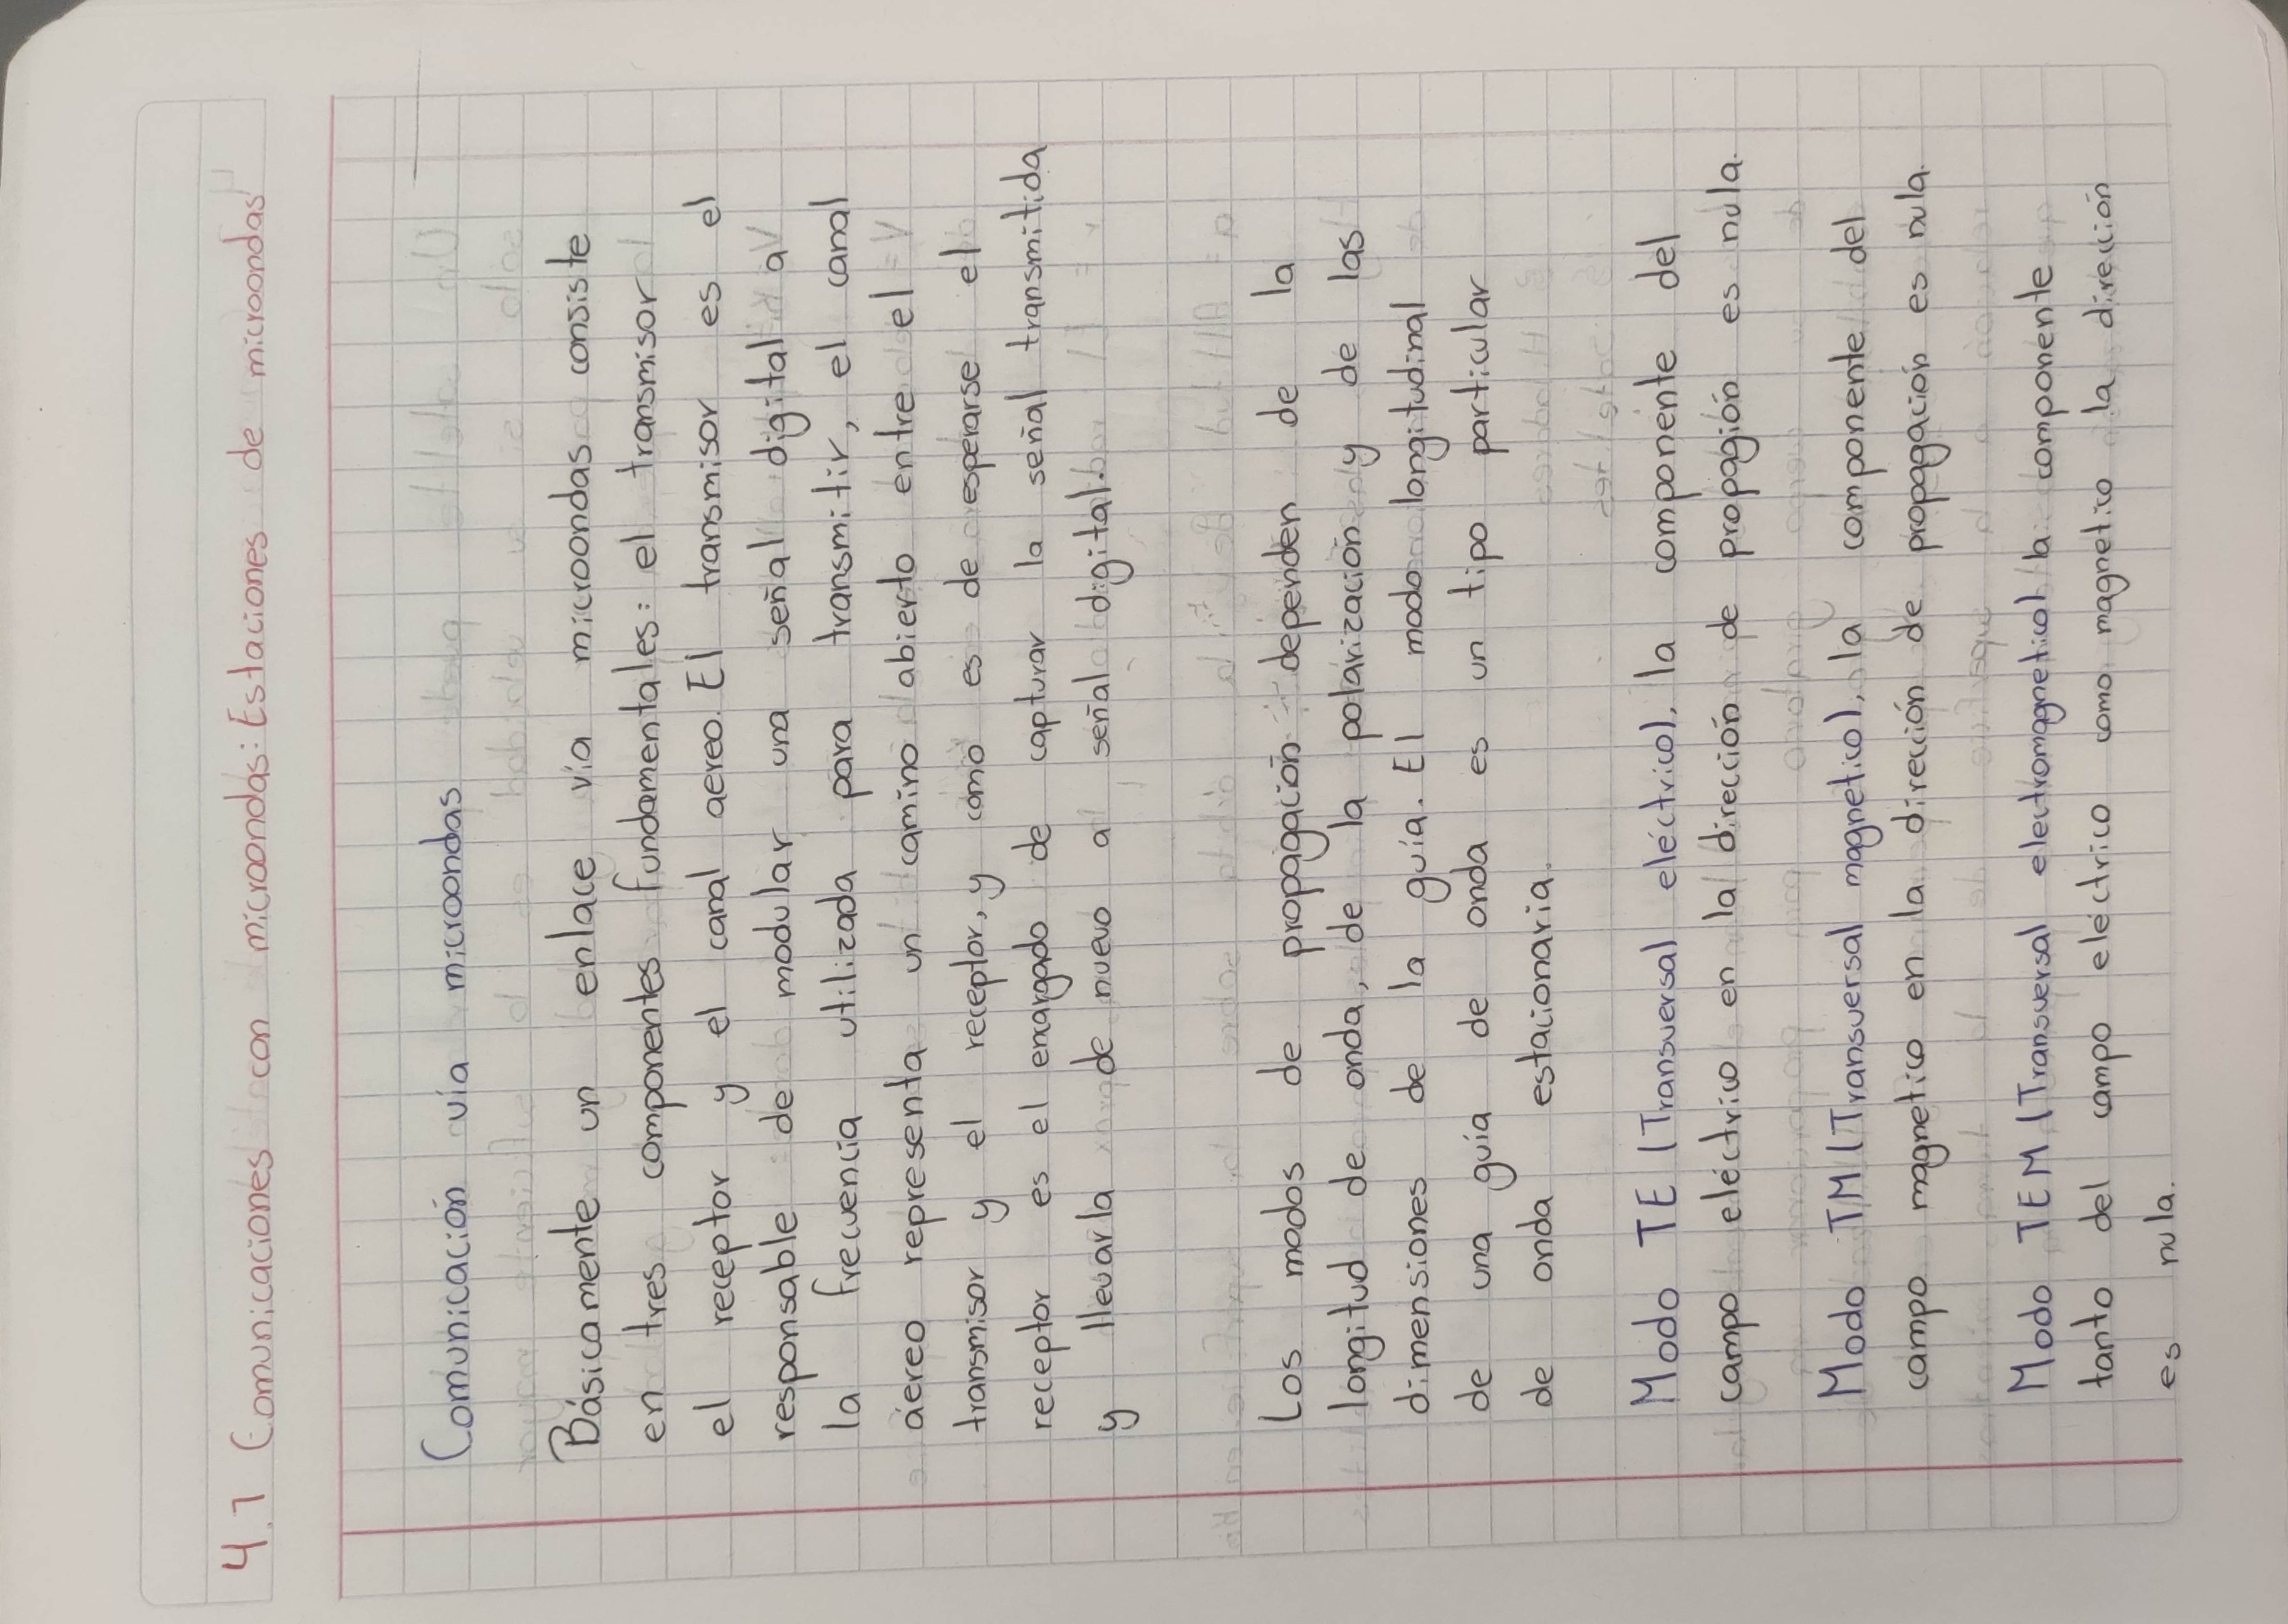 4.7 Comunicaciones con microondas: Estaciones de microondas
Comunicación vía microondas
Básicamente un enlace vía microondas consiste
en tres componentes fundamentales: el transmisor
el receptor y el canal aereo. El transmisor es el
responsable de modular una señal digital a
la frecuencia utilizada para transmitir, el canal
áereo representa un camino abierto entre el
transmisor y el receptor, y como es de esperarse el
receptor es el encargado de capturar la señal transmitida
y llevarla de nuevo a señal digital.
Los modos de propagación dependen de la
longitud de onda, de la polarización y de las
dimensiones de la guía. El modo longitudinal
de una guía de onda es un tipo particular
de onda estacionaria.
Modo TE (Transversal eléctrico), la componente del
campo eléctrico en la dirección de propagión es nula.
Modo TM (Transversal magnetico), la componente del
campo magnetico en la dirección de propagación es nula.
Modo TEM (Transversal electromagnetico) la componente
tanto del campo eléctrico como magnetico la dirección
es nula.